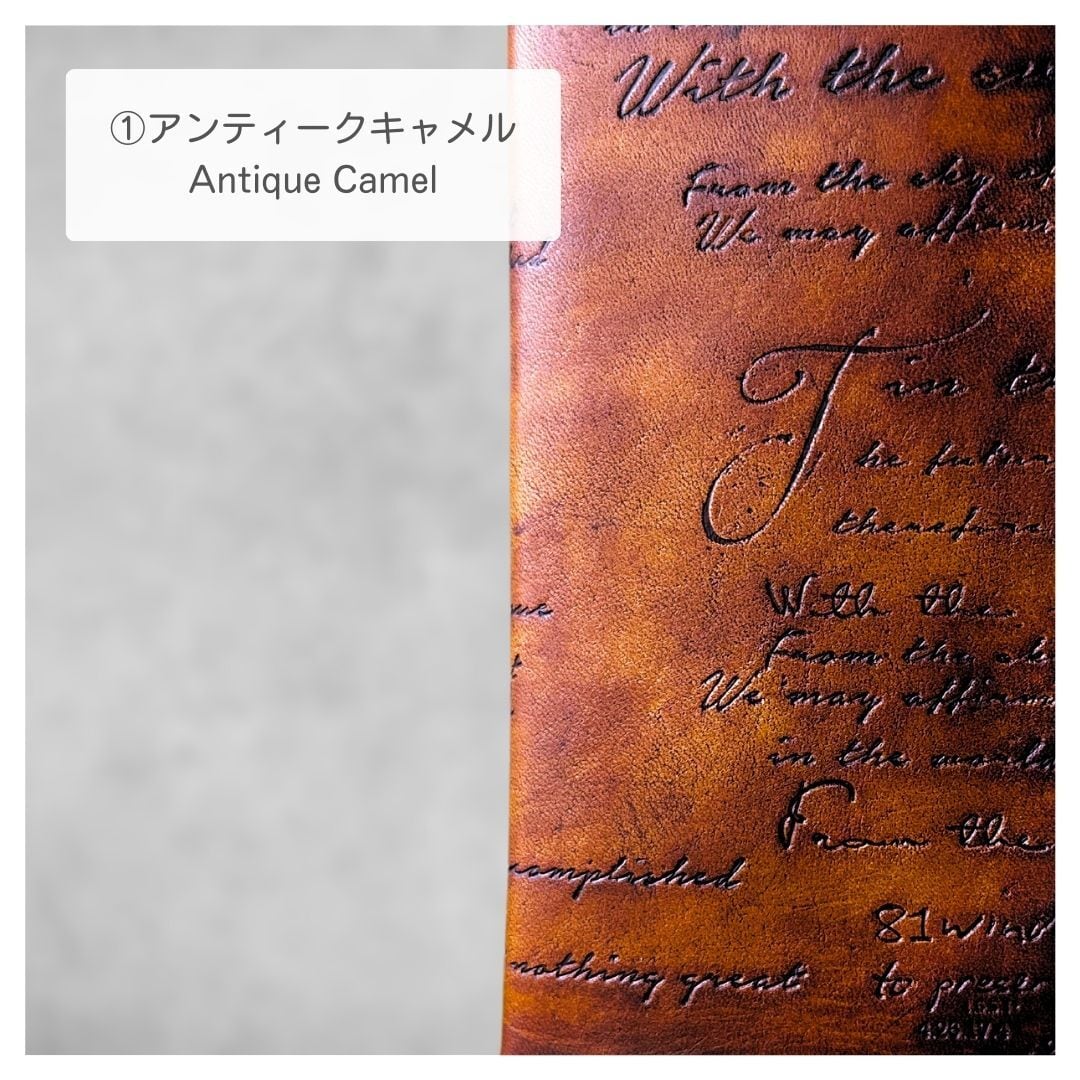 ①アンティークキャメル
Antique Camel
With the
From the sky
We may affirm
T in
be future
therefore
With the
From the
We may affirm
in the world
From the
complished
81wind
nothing great
to